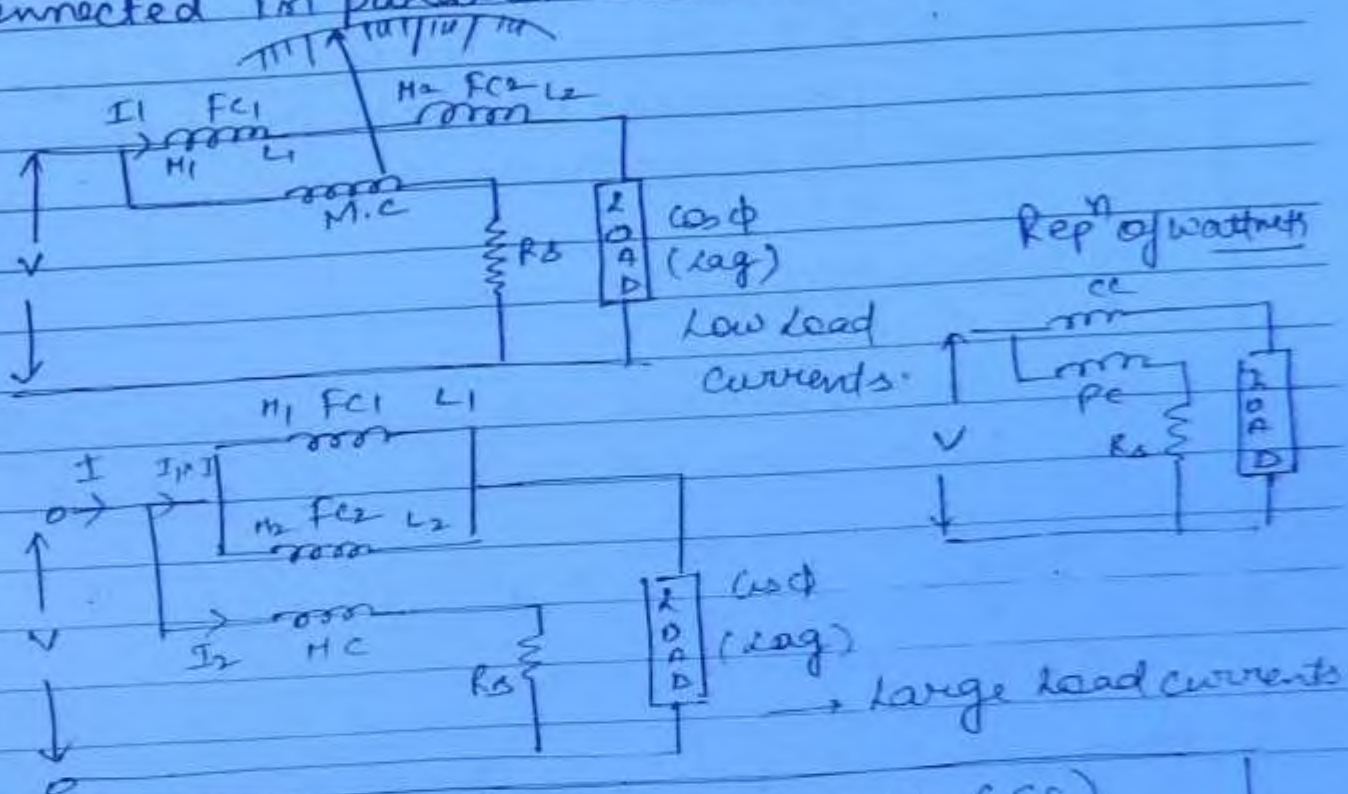 nnected in
I1 FC1
M1 L1
M2 FC2 L2
M.C
V
Rs
LOAD
cosφ
(Lag)
Low Load
currents.
Repⁿ of wattmets
cc
pc
V
Rs
LOAD
M1 FC1 L1
I
M2 FC2 L2
I2 MC
V
Rs
LOAD
cosφ
(Lag)
→ Large Load currents